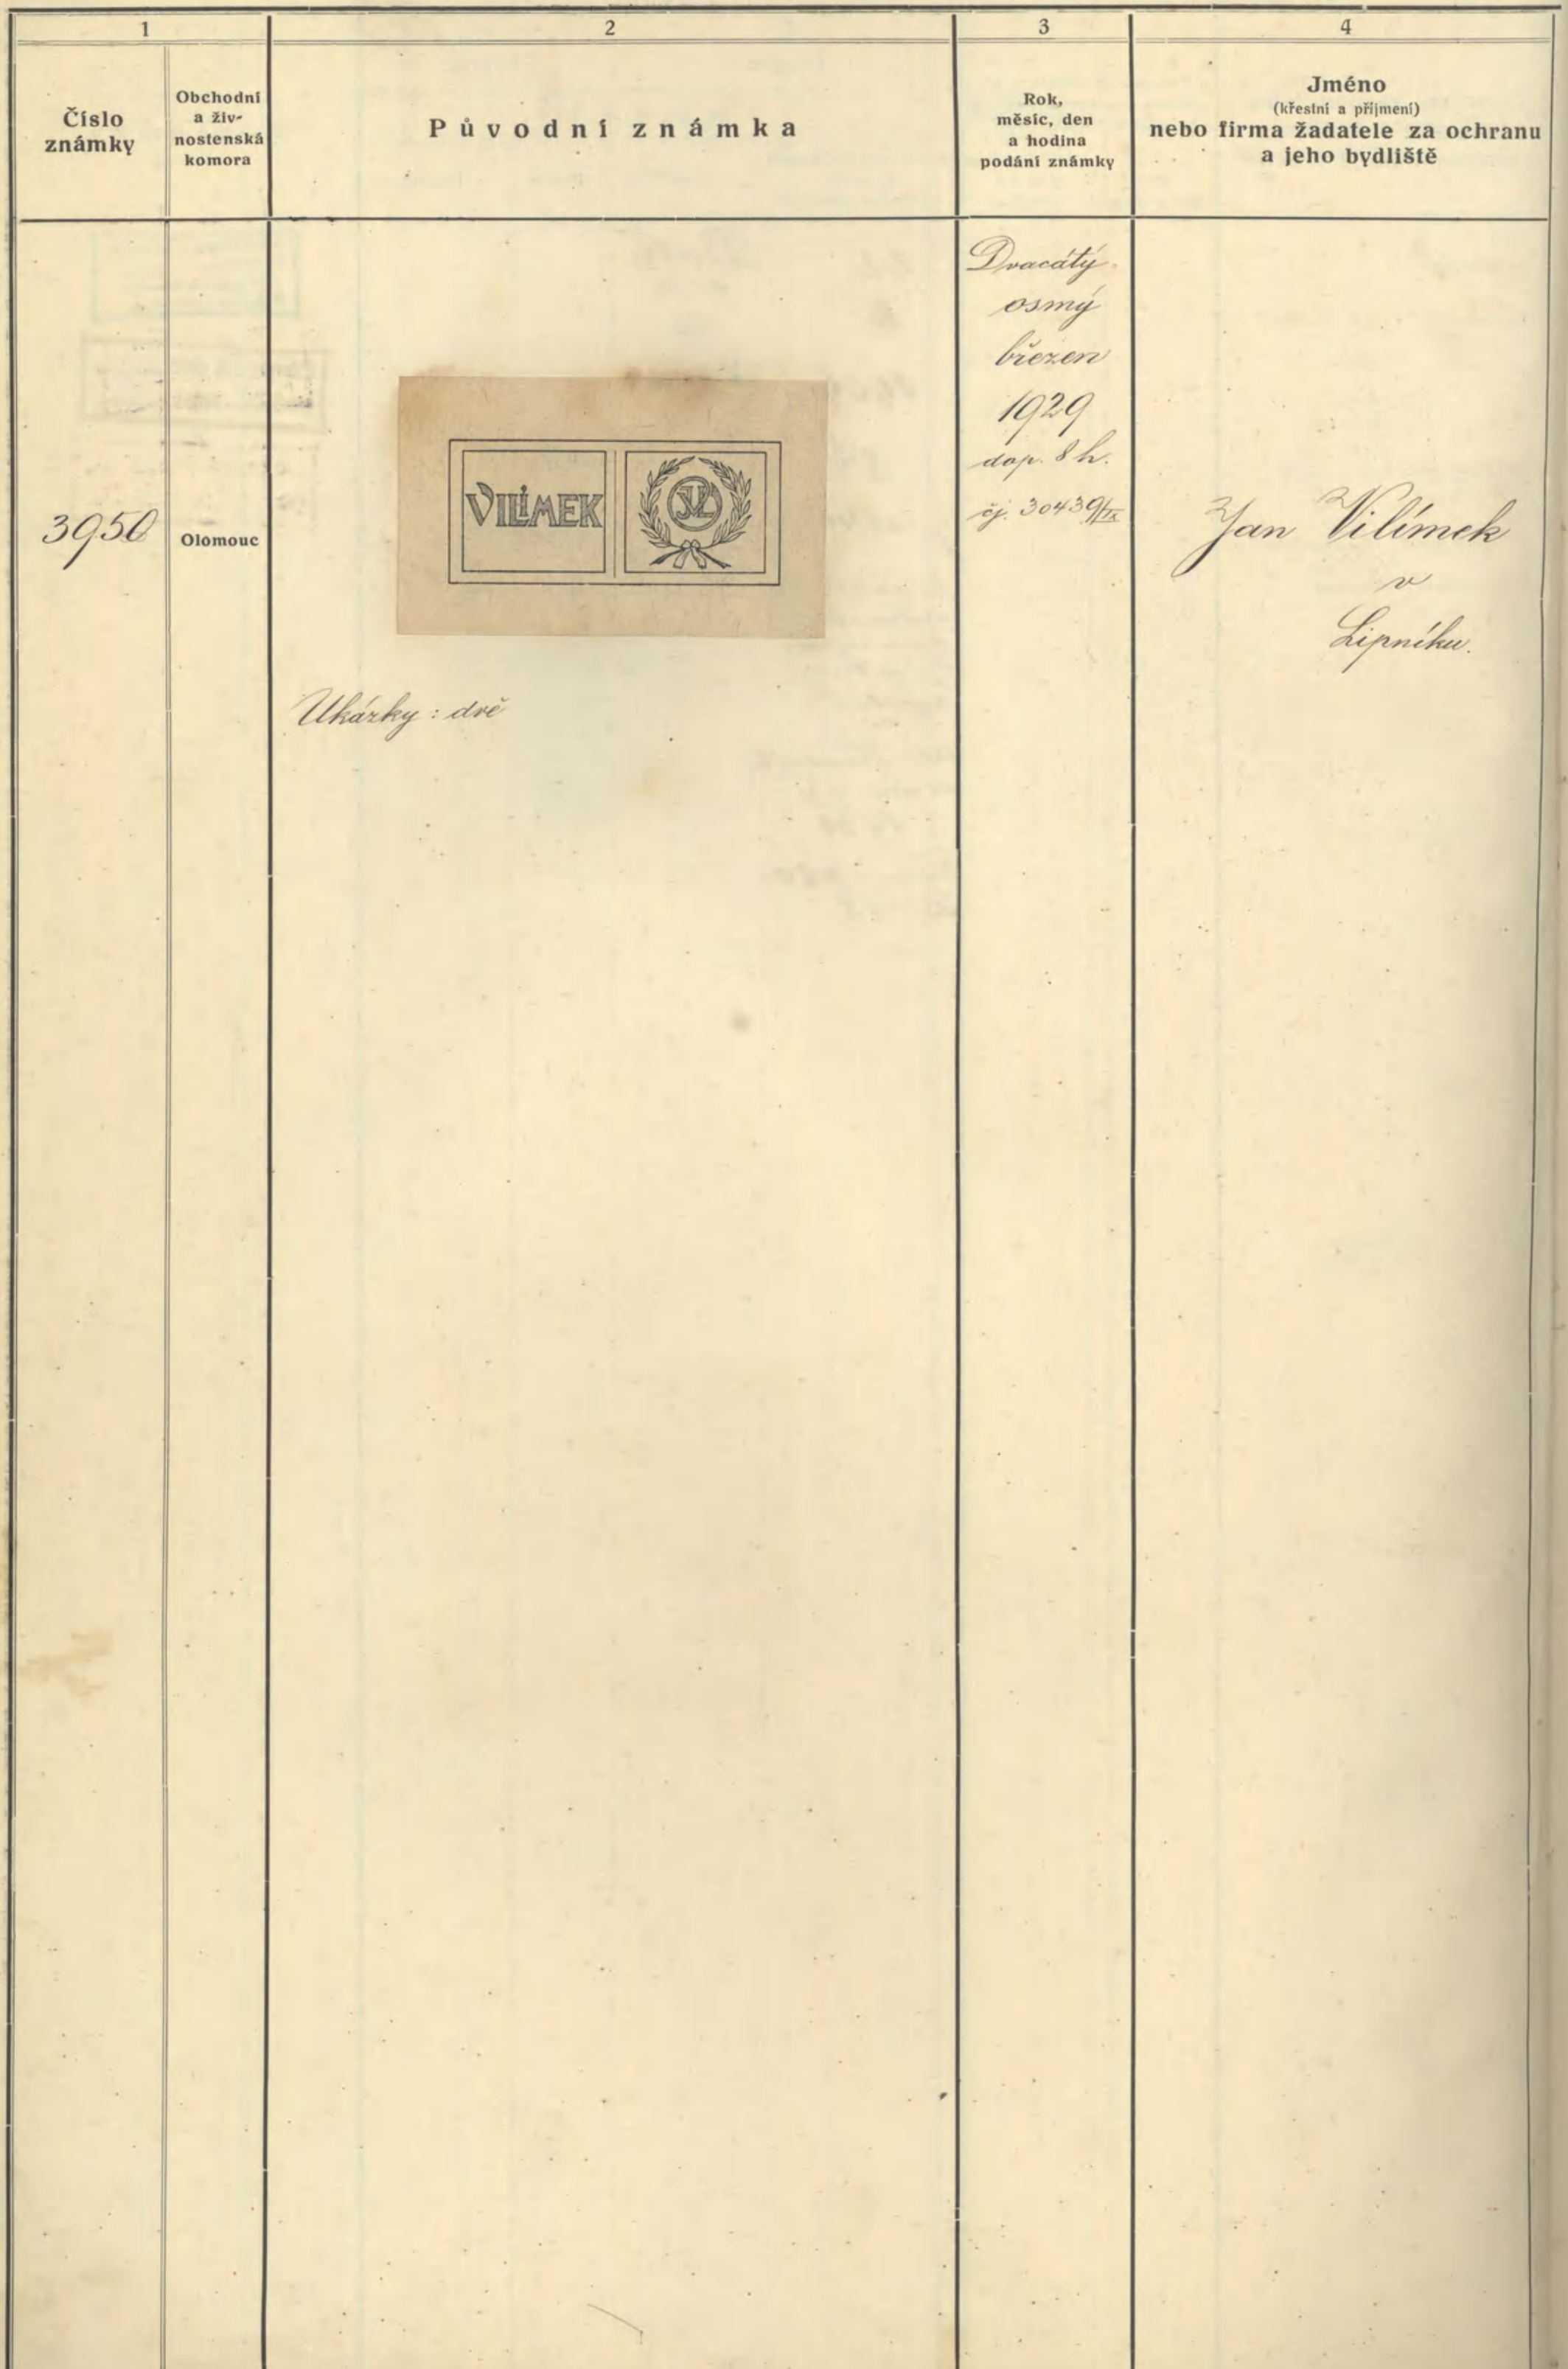 1
2
3
4
Číslo
známky
Obchodní
a živ-
nostenská
komora
Původní známka
Rok,
měsíc, den
a hodina
podání známky
Jméno
(křestní a příjmení)
nebo firma žadatele za ochranu
a jeho bydliště
3950
Olomouc
VILÍMEK
Ukázky: dvě
Dvacátý
osmý
březen
1929
dop. 8 h.
čj. 30439/IX
Jan Vilímek
v
Lipníku.